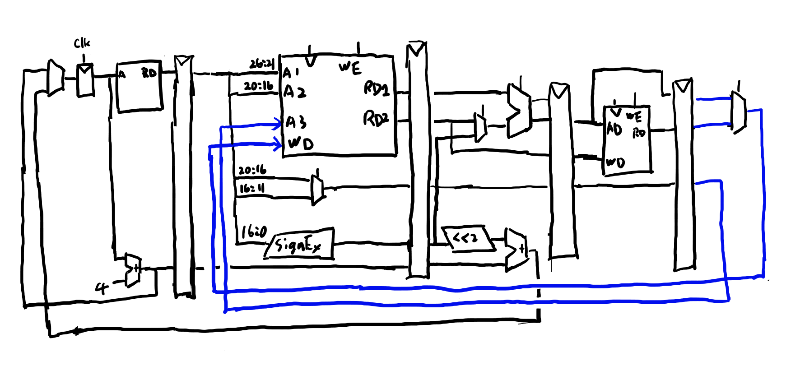 Clk
A RD
26:21
20:16
A1
A2
A3
WD
WE
RD1
RD2
20:16
16:11
16:0
SignEx
<<2
+
4
+
AD
WD
WE
RD